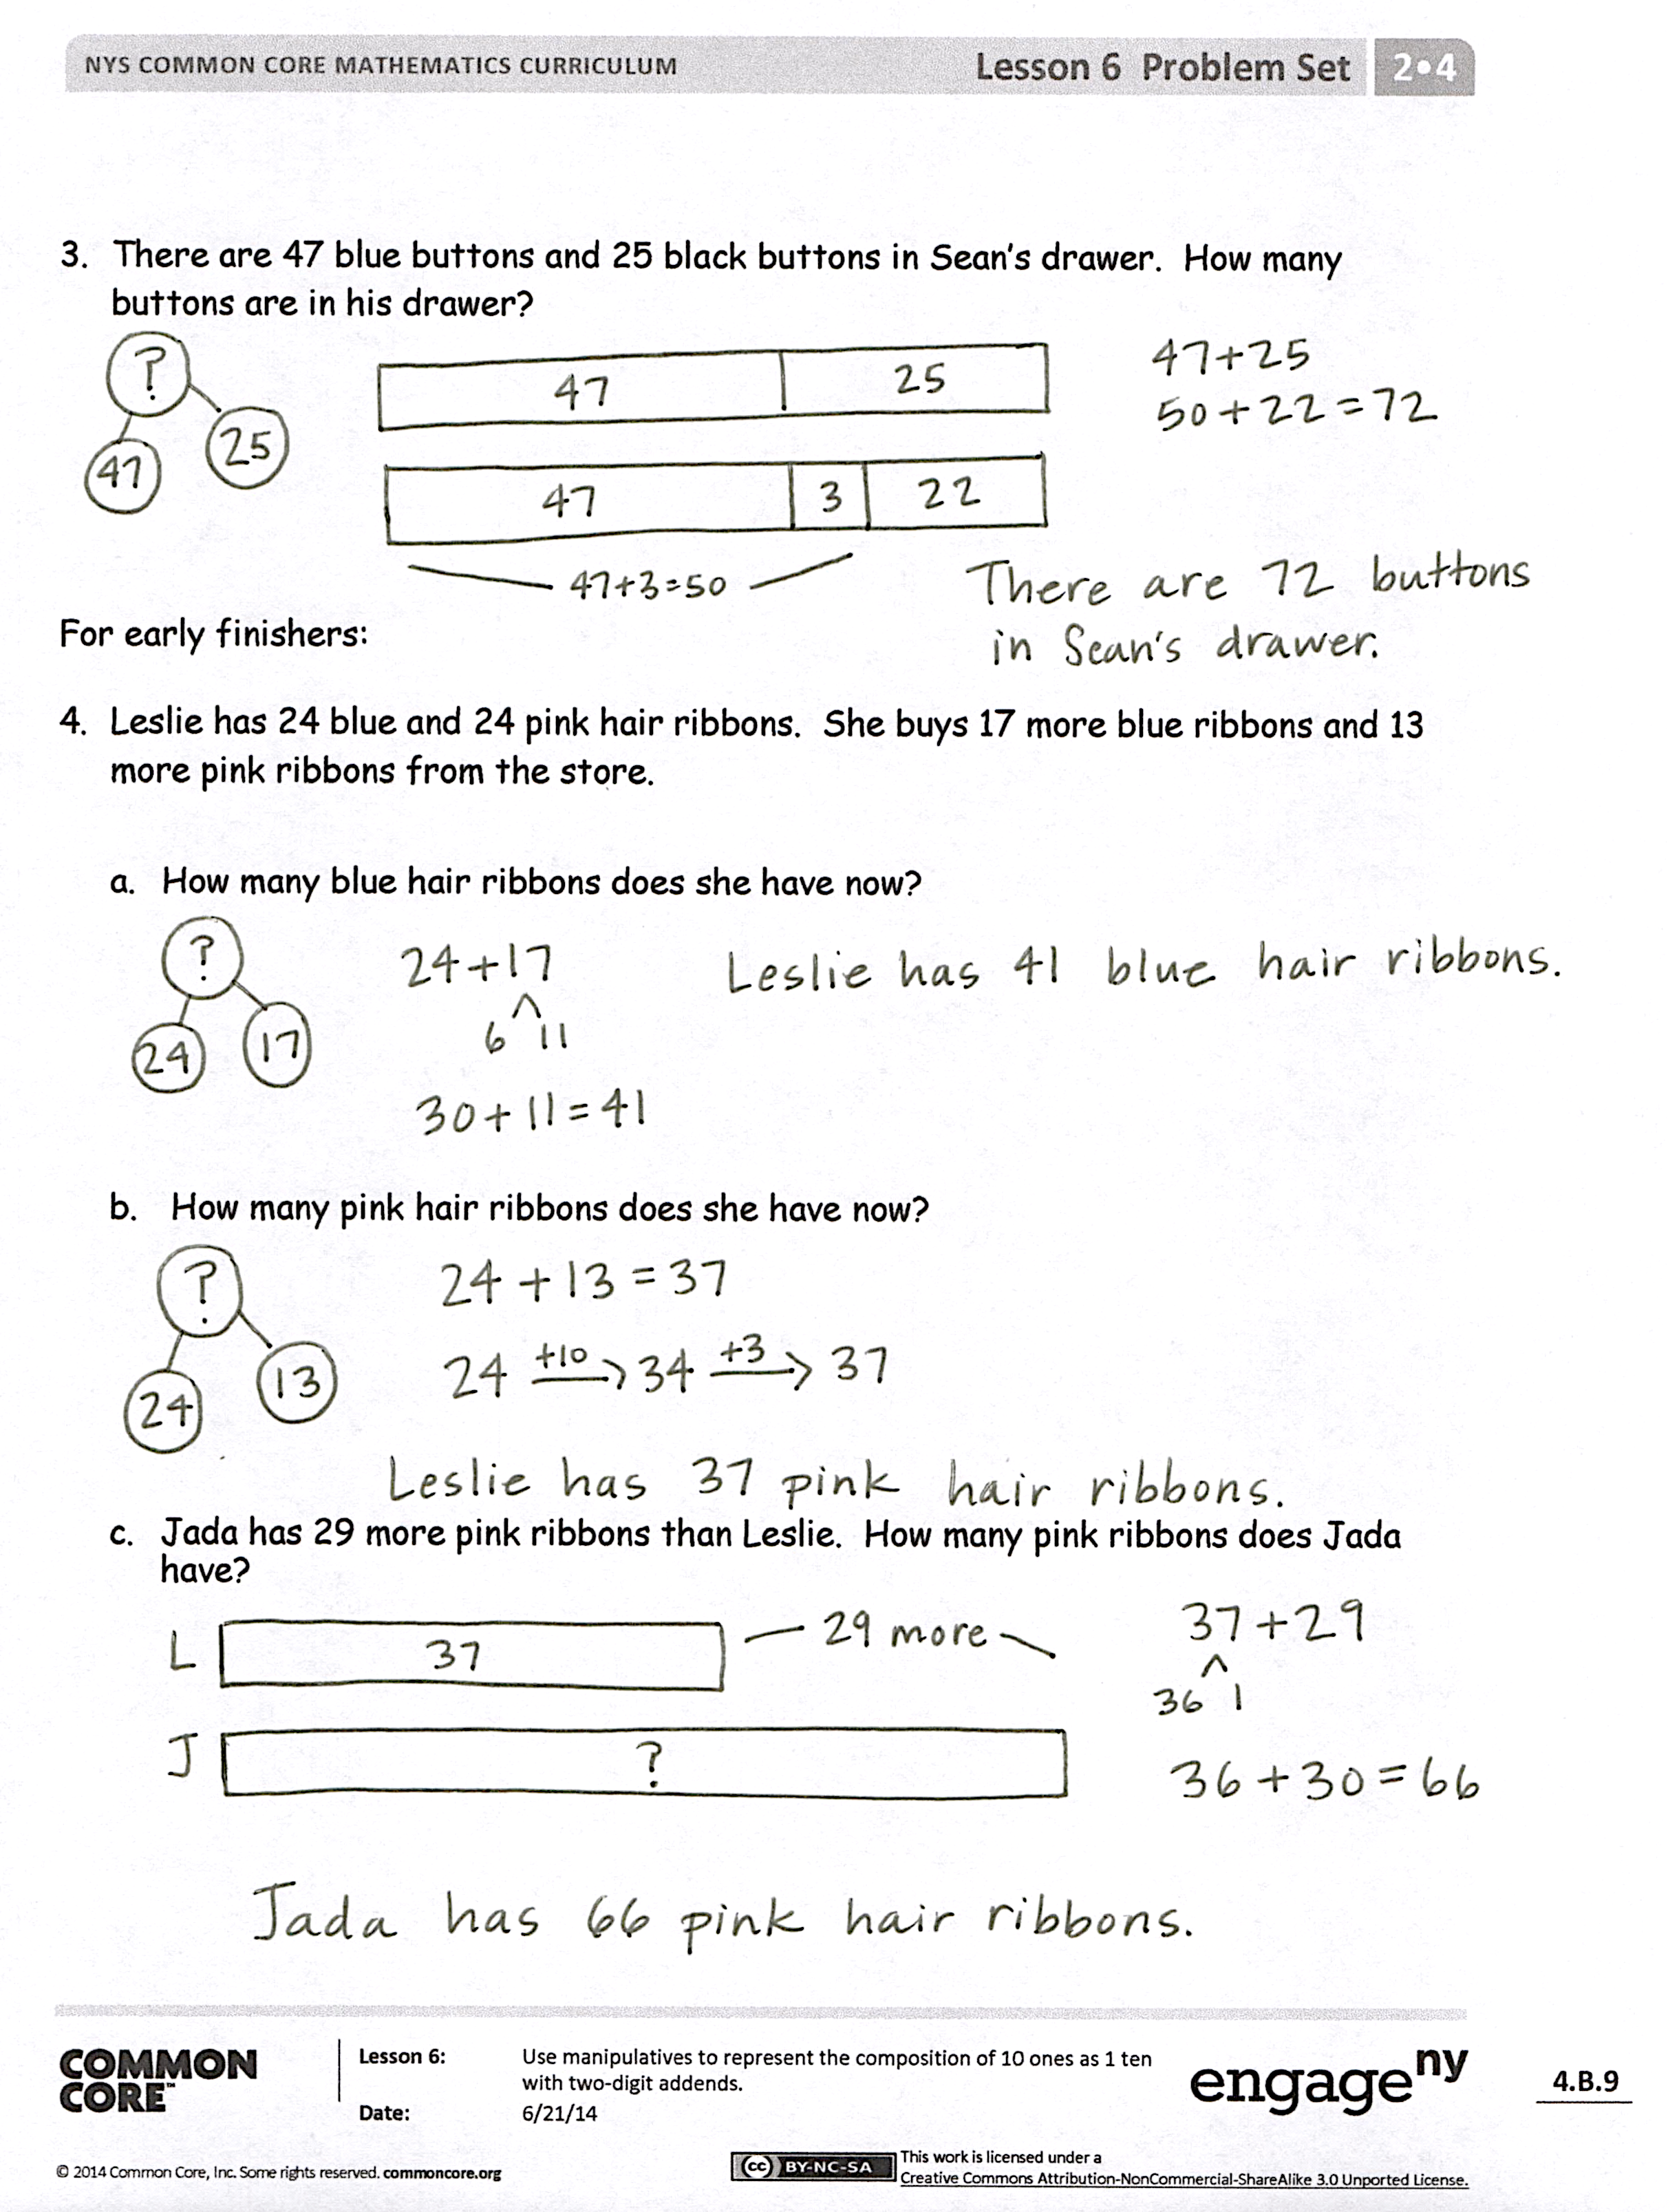 NYS COMMON CORE MATHEMATICS CURRICULUM Lesson 6 Problem Set 2•4
3. There are 47 blue buttons and 25 black buttons in Sean's drawer. How many
buttons are in his drawer?
? 47 25
47 25
47+25
50+22=72
47 3 22
47+3=50
There are 72 buttons
in Sean's drawer.
For early finishers:
4. Leslie has 24 blue and 24 pink hair ribbons. She buys 17 more blue ribbons and 13
more pink ribbons from the store.
a. How many blue hair ribbons does she have now?
? 24 17
24+17
6 11
30+11=41
Leslie has 41 blue hair ribbons.
b. How many pink hair ribbons does she have now?
? 24 13
24+13=37
24 +10 → 34 +3 → 37
Leslie has 37 pink hair ribbons.
c. Jada has 29 more pink ribbons than Leslie. How many pink ribbons does Jada
have?
L 37 29 more
J ?
37+29
36 1
36+30=66
Jada has 66 pink hair ribbons.
COMMON
CORE™
Lesson 6: Use manipulatives to represent the composition of 10 ones as 1 ten
with two-digit addends.
Date: 6/21/14
engageny
4.B.9
© 2014 Common Core, Inc. Some rights reserved. commoncore.org
cc BY-NC-SA
This work is licensed under a
Creative Commons Attribution-NonCommercial-ShareAlike 3.0 Unported License.